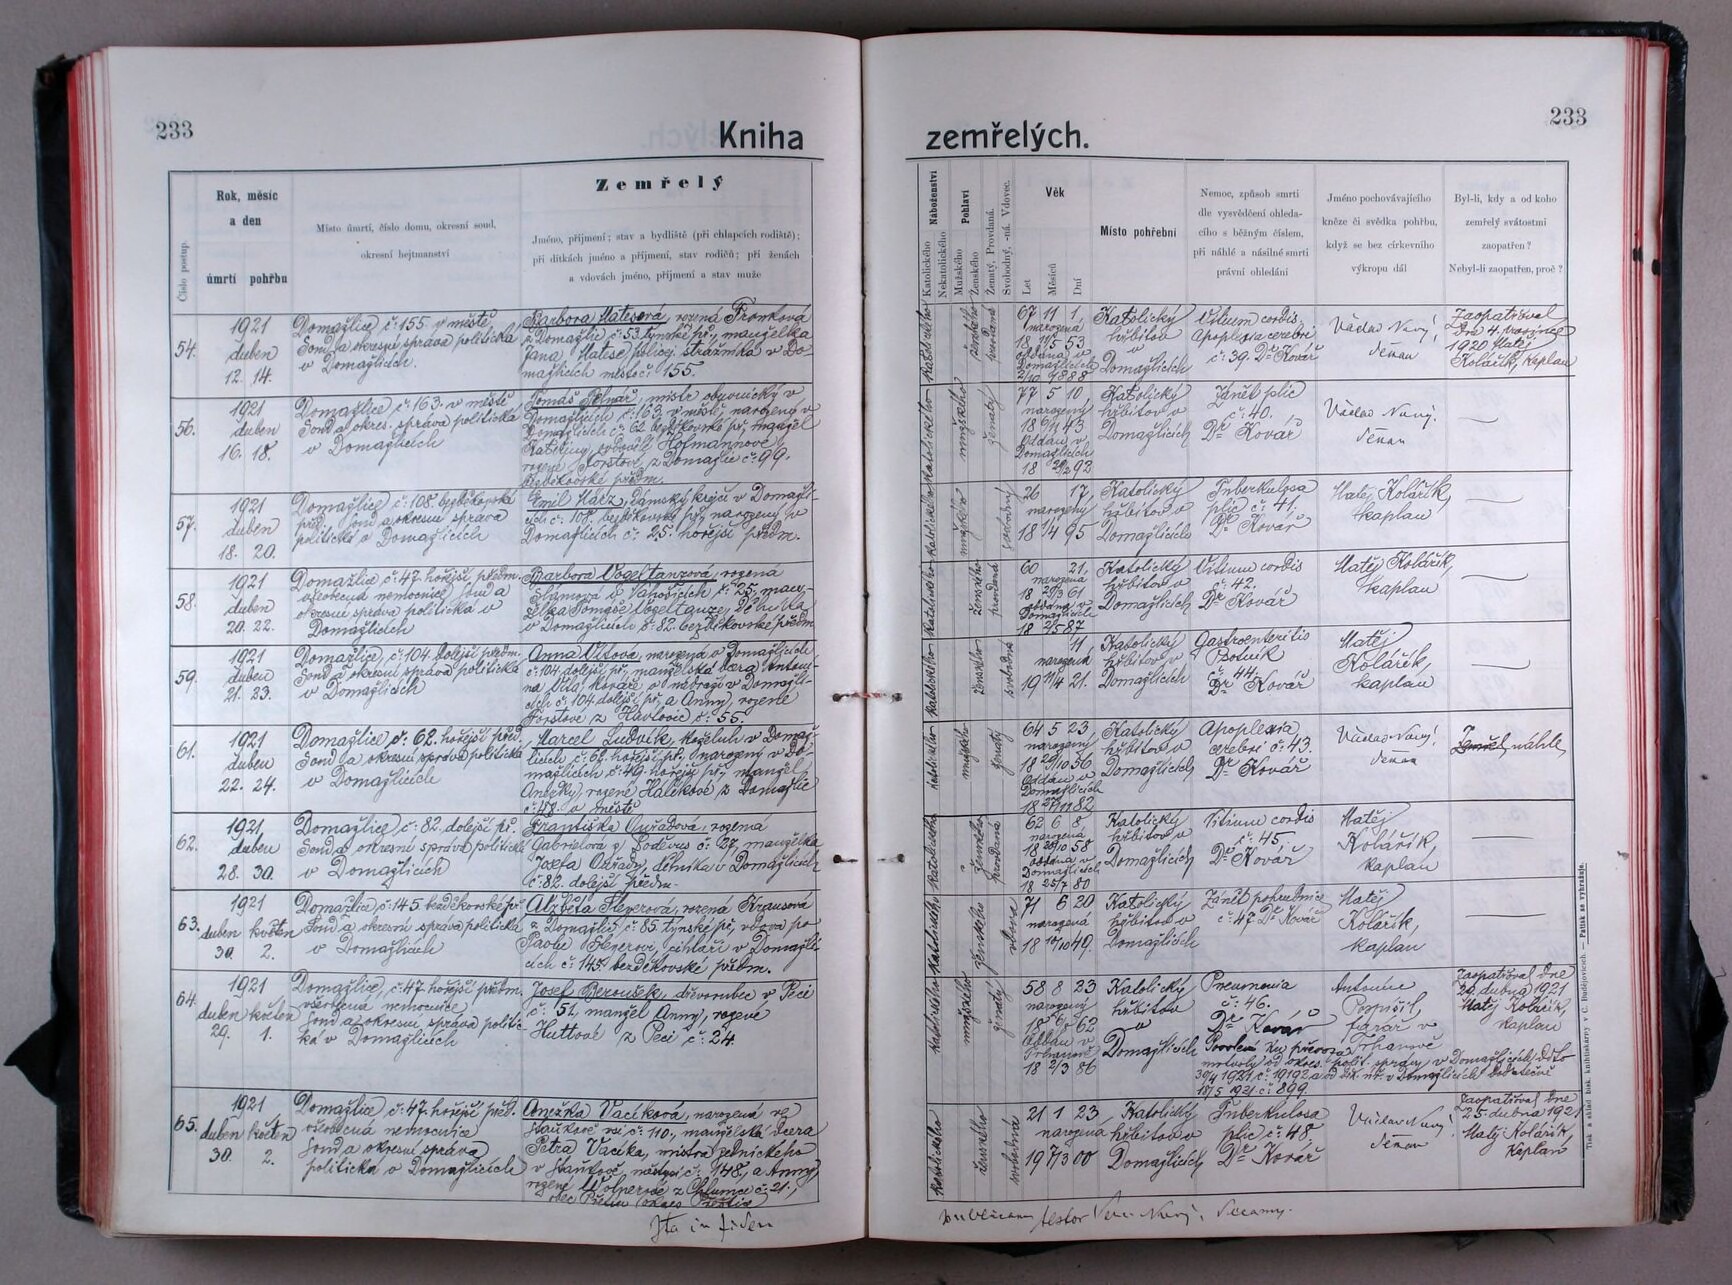 233
Kniha zemřelých.
233
Číslo postup.
Rok, měsíc
a den
úmrtí pohřbu
Místo úmrtí, číslo domu, okresní soud,
okresní hejtmanství
Zemřelý
Jméno, příjmení; stav a bydliště (při chlapcích rodiště);
při dítkách jméno a příjmení, stav rodičů; při ženách
a vdovách jméno, příjmení a stav muže
Náboženství
Katolického
Nekatolického
Pohlaví
Mužského
Ženského
Ženatý, Provdaná.
Svobodný, -ná. Vdovec.
Věk
Let
Měsíců
Dní
Místo pohřební
Nemoc, způsob smrti
dle vysvědčení ohleda-
cího s běžným číslem,
při náhlé a násilné smrti
právní ohledání
Jméno pochovávajícího
kněze či svědka pohřbu,
když se bez církevního
výkropu dál
Byl-li, kdy a od koho
zemřelý svátostmi
zaopatřen?
Nebyl-li zaopatřen, proč?
54.
1921
duben
12. 14.
Domažlice č: 155. v městě
Soud a okresní správa politická
v Domažlicích.
Barbora Matesová, rozená Fronková
z Domažlic č: 53 týnské př., manželka
Jana Matese, policej. strážníka v Do-
mažlicích město č: 155.
katolického
ženského
provdaná
67 11 1,
narozená
18 11/5 53
oddána v
Domažlicích
1888
Katolický
hřbitov
v
Domažlicích
Vitium cordis,
Apoplexia cerebri
č: 39. Dr. Kovář
Václav Nový,
děkan
Zaopatřoval
dne 4. prosince
1920 Matěj
Kolářík, kaplan
56.
1921
duben
16. 18.
Domažlice č: 163. v městě
Soud a okres. správa politická
v Domažlicích
Tomáš Pelnář, mistr obuvnický v
Domažlicích č: 163 v městě, narozený v
Domažlicích č: 62 bezděkovské př., manžel
Kateřiny, ovdovělé Hofmannové,
rozené Forstové, z Domažlic č: 99.
bezděkovské předm.
katolického
mužského
ženatý
77 5 10
narozený
18 6/11 43
Oddán v
Domažlicích
18 92
Katolický
hřbitov v
Domažlicích
Zánět plic
č: 40.
Dr. Kovář
Václav Nový.
děkan
57.
1921
duben
18. 20.
Domažlice č: 108. bezděkovské
př. Soud a okresní správa
politická v Domažlicích
Emil Harz, dámský krejčí v Domažli-
cích č: 108. bezděkovské př., narozený v
Domažlicích č: 25. hořejší předm.
katolického
mužského
svobodný
26 17,
narozený
18 1/4 95
Katolický
hřbitov v
Domažlicích
Tuberkulosa
plic č: 41.
Dr. Kovář
Matěj Kolářík,
kaplan
58.
1921
duben
20. 22.
Domažlice č: 47. hořejší předm.
všeobecná nemocnice Soud a
okresní správa politická v
Domažlicích
Barbora Vogeltanzová, rozená
č: 25. man-
želka Tomáše Vogeltanze, dělníka
v Domažlicích č: 82. bezděkovské předm
katolického
ženského
provdaná
60 21.
narozená
18 29/3 61
oddána v
Domažlicích
18 87
Katolický
hřbitov v
Domažlicích
Vitium cordis
č: 42.
Dr. Kovář
Matěj Kolářík,
kaplan
59.
1921
duben
21. 23.
Domažlice, č: 104. dolejší předm.
Soud a okresní správa politická
v Domažlicích
Anna Vítová, narozená v Domažlicích
č: 104 dolejší př., manželská dcera Antoní-
na Víta, kováře v nádraží v Domažli-
cích č: 104. dolejší př., a Anny, rozené
Forstové z Havlovic č: 55.
katolického
ženského
svobodná
11
narozená
19 11/4 21.
Katolický
hřbitov v
Domažlicích
Gastroenteritis
Psotník
č: 44.
Dr. Kovář
Matěj
Kolářík,
kaplan
61.
1921
duben
22. 24.
Domažlice č: 62. hořejší před
Soud a okresní správa politická
v Domažlicích
Marcel Ludvík, koželuh v Domaž-
licích č: 62 hořejší př., narozený v Do-
mažlicích č: 49. hořejší př., manžel
Anežky, rozené Halíkové z Domažlic
č: 48. v městě
katolického
mužského
ženatý
64 5 23
narozený
18 29/10 56
Oddán v
Domažlicích
18 27/11 82
Katolický
hřbitov v
Domažlicích
Apoplexia
cerebri č: 43.
Dr. Kovář
Václav Nový.
děkan
Zemřel náhle
62.
1921
duben
28. 30.
Domažlice, č: 82. dolejší př.
Soud a okresní správa politická
v Domažlicích
Františka Ouřadová, rozená
Gabrielová č: 27, manželka
Josefa Ouřady, dělníka v Domažlicích
č: 82. dolejší předm.
katolického
ženského
provdaná
62 6 8
narozená
18 20/10 58
oddána v
Domažlicích
18 25/7 80
Katolický
hřbitov v
Domažlicích
Vitium cordis
č: 45.
Dr. Kovář
Matěj
Kolářík,
kaplan
63.
1921
duben květen
30. 2.
Domažlice, č: 145 bezděkovské př.
Soud a okresní správa politická
v Domažlicích
Alžběta Flegerová, rozená Krausová
z Domažlic č: 85. týnské př., vdova po
Pavlu Flegerovi, cihláři v Domažli-
cích č: 145. bezděkovské předm.
katolického
ženského
vdova
71 6 20
narozená
18 10/10 49.
Katolický
hřbitov v
Domažlicích
Zánět pohrudnice
č: 47 Dr. Kovář
Matěj
Kolářík,
kaplan
64.
1921
duben květen
29. 1.
Domažlice, č: 47 hořejší předm.
všeobecná nemocnice
Soud a okresní správa politic-
ká v Domažlicích
Josef Beroušek, dřevorubec v Peci
č: 51, manžel Anny, rozené
Huttové z Peci č: 24
katolického
mužského
ženatý
58 8 23
narozený
18 6/8 62
Oddán v
Trhanově
18 2/3 86
Katolický
hřbitov
v
Domažlicích
Pneumonia
č: 46.
Dr. Kovář
Antonín
Pospíšil,
farář v
Trhanově
Zaopatřoval dne
dubna 1921
Matěj Kolářík,
kaplan
Povolení ku převozu
mrtvoly od okres. polit. správy v Domažlicích dto
30/4 1921 č: 19192 a od v Domažlicích dodatečně
18/5 1921 č: 899
65.
1921
duben květen
30. 2.
Domažlice č: 47. hořejší před.
všeobecná nemocnice
Soud a okresní správa
politická v Domažlicích
Anežka Vacíková, narozená ve
Staňkově vsi č: 110., manželská dcera
Petra Vacíka, mistra zedníckého
v Staňkově, městysi č: 148, a Anny,
rozené Wolperové z Chlumce č: 21,
katolického
ženského
svobodná
21 1 23
narozena
19 7/3 00
Katolický
hřbitov v
Domažlicích
Tuberkulosa
plic č: 48.
Dr. Kovář
Václav Nový
děkan
Zaopatřoval dne
25 dubna 1921
Matěj Kolářík,
kaplan
Ita in fidem
testor Nový, decanus.
Tisk a sklad bisk. knihtiskárny v C. Budějovicích. — Patisk se vyhražuje.